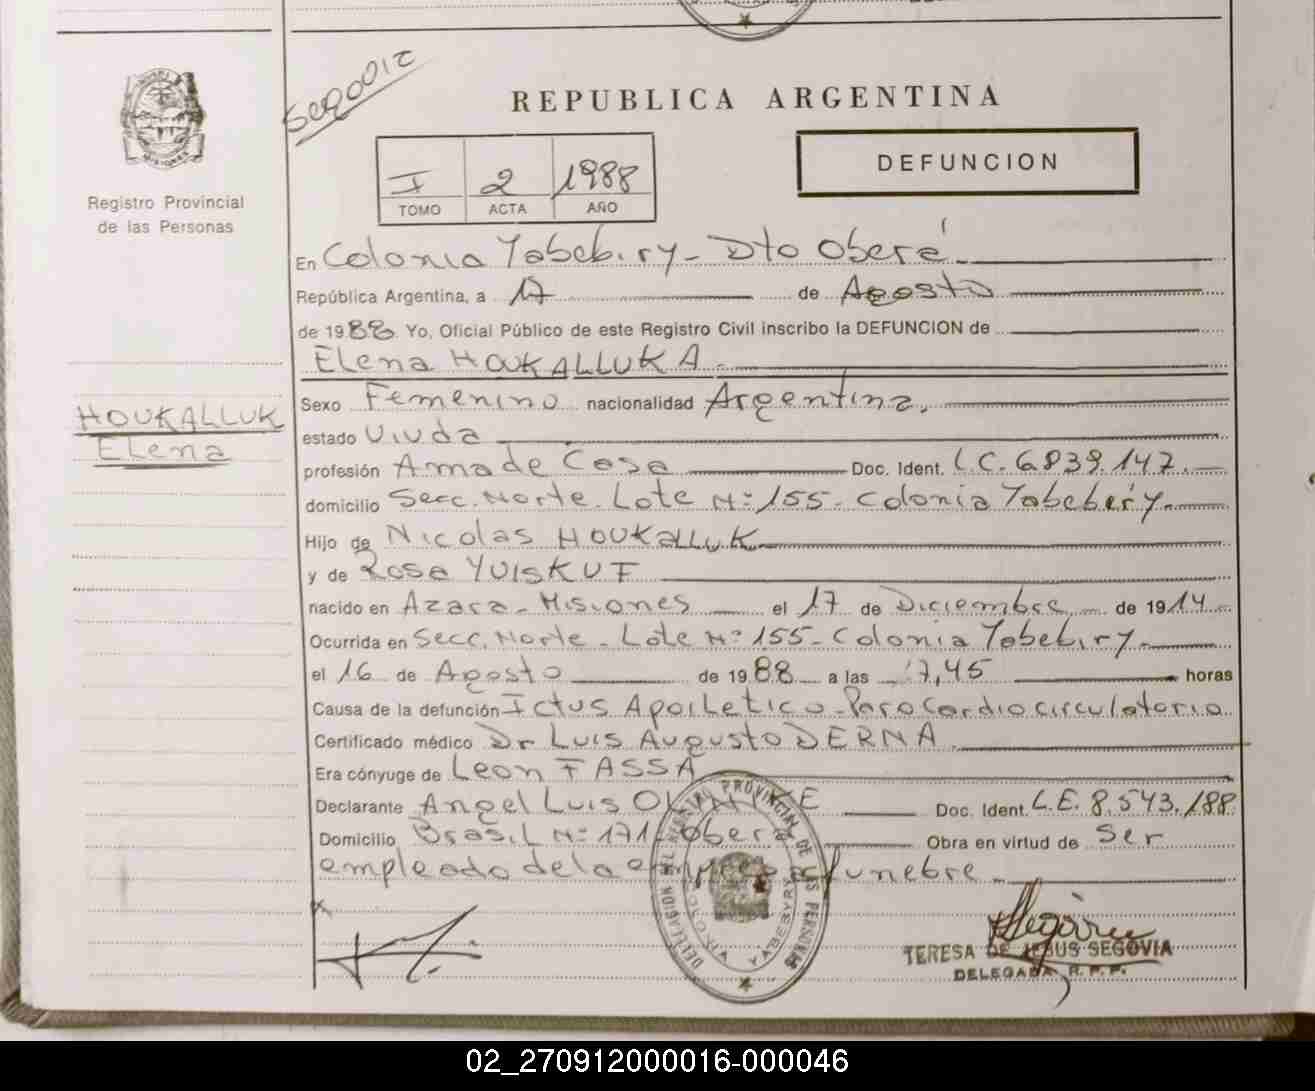 REPUBLICA ARGENTINA
DEFUNCION
MISIONES
Registro Provincial
de las Personas
I 2 1988
TOMO ACTA AÑO
En Colonia Yabebiry - Dto Oberá
República Argentina, a 17 de Agosto
de 1988 Yo, Oficial Público de este Registro Civil inscribo la DEFUNCION de
Elena HOUKALLUK A.
HOUKALLUK
Elena
Sexo Femenino nacionalidad Argentina.
estado Viuda
profesión Ama de Casa Doc. Ident. L.C. 6.839.147.
domicilio Secc. Norte. Lote Nº 155 - Colonia Yabebery.
Hijo de Nicolas HOUKALLUK
y de Rosa YUISKUF
nacido en Azara - Misiones el 17 de Diciembre de 1914
Ocurrida en Secc. Norte - Lote Nº 155 - Colonia Yabebiry.
el 16 de Agosto de 1988 a las 17,45 horas
Causa de la defunción Ictus Apoiletico - Paro Cardiocirculatorio
Certificado médico Dr Luis Augusto DERNA
Era cónyuge de Leon FASSA
Declarante Angel Luis Doc. Ident. L.E. 8.543.188
Domicilio Brasil Nº 171 - Oberá Obra en virtud de Ser
empleado de la empresa funebre
DELEGACION DEL REGISTRO PROVINCIAL DE LAS PERSONAS
COLONIA YABEBYRY
TERESA DE JESUS SEGOVIA
DELEGADA R. P. P.
02_270912000016-000046